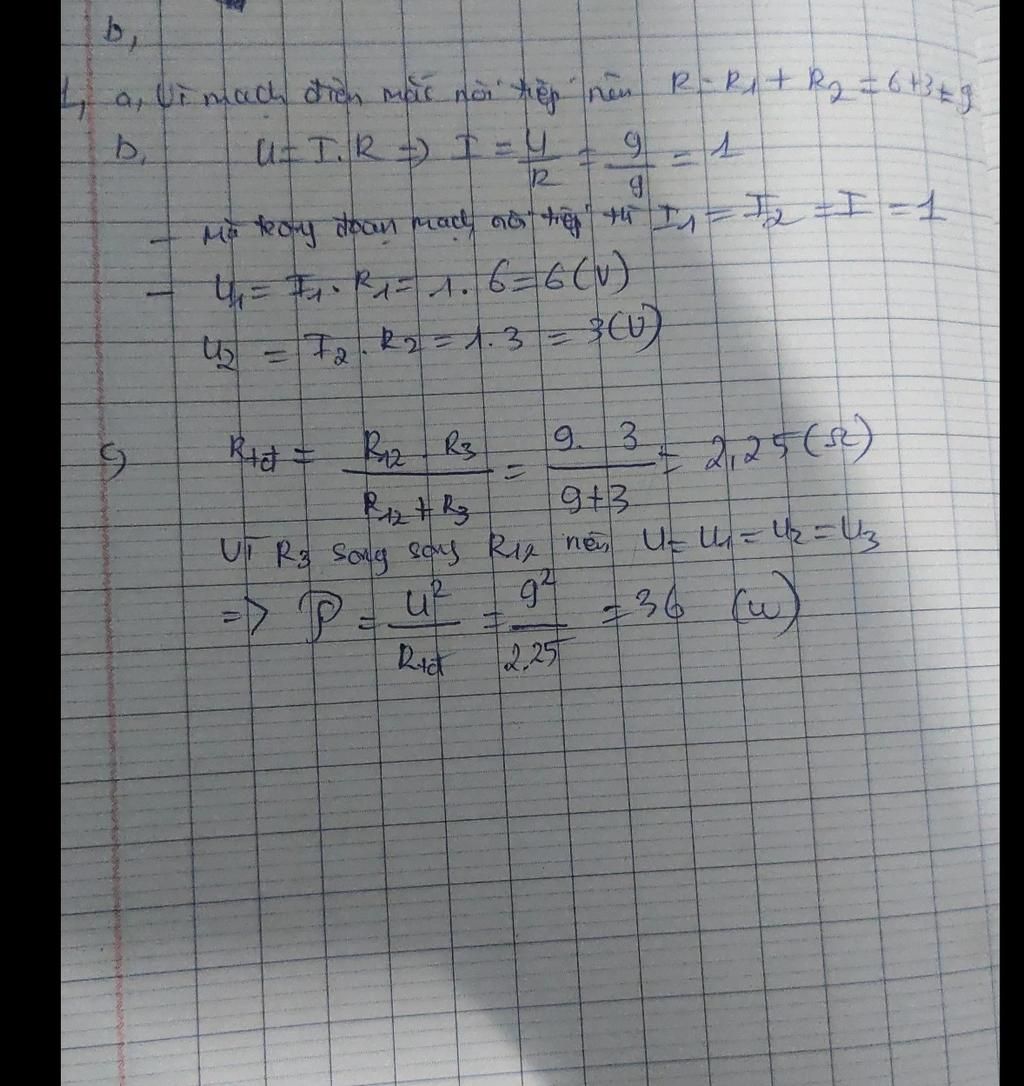 b,
1, a, Vì mạch điện mắc nối tiếp nên R = R1 + R2 = 6+3 = 9
b, U = I.R => I = U/R = 9/9 = 1
- Mà trong đoạn mạch nối tiếp thì I1 = I2 = I = 1
- U1 = I1. R1 = 1. 6 = 6 (V)
U2 = I2. R2 = 1.3 = 3 (V)
c) Rtđ = R12 . R3 / R12 + R3 = 9. 3 / 9+3 = 2,25 (Ω)
Vì R3 song song R12 nên U = U1 = U2 = U3
=> P = U²/Rtđ = 9²/2,25 = 36 (W)